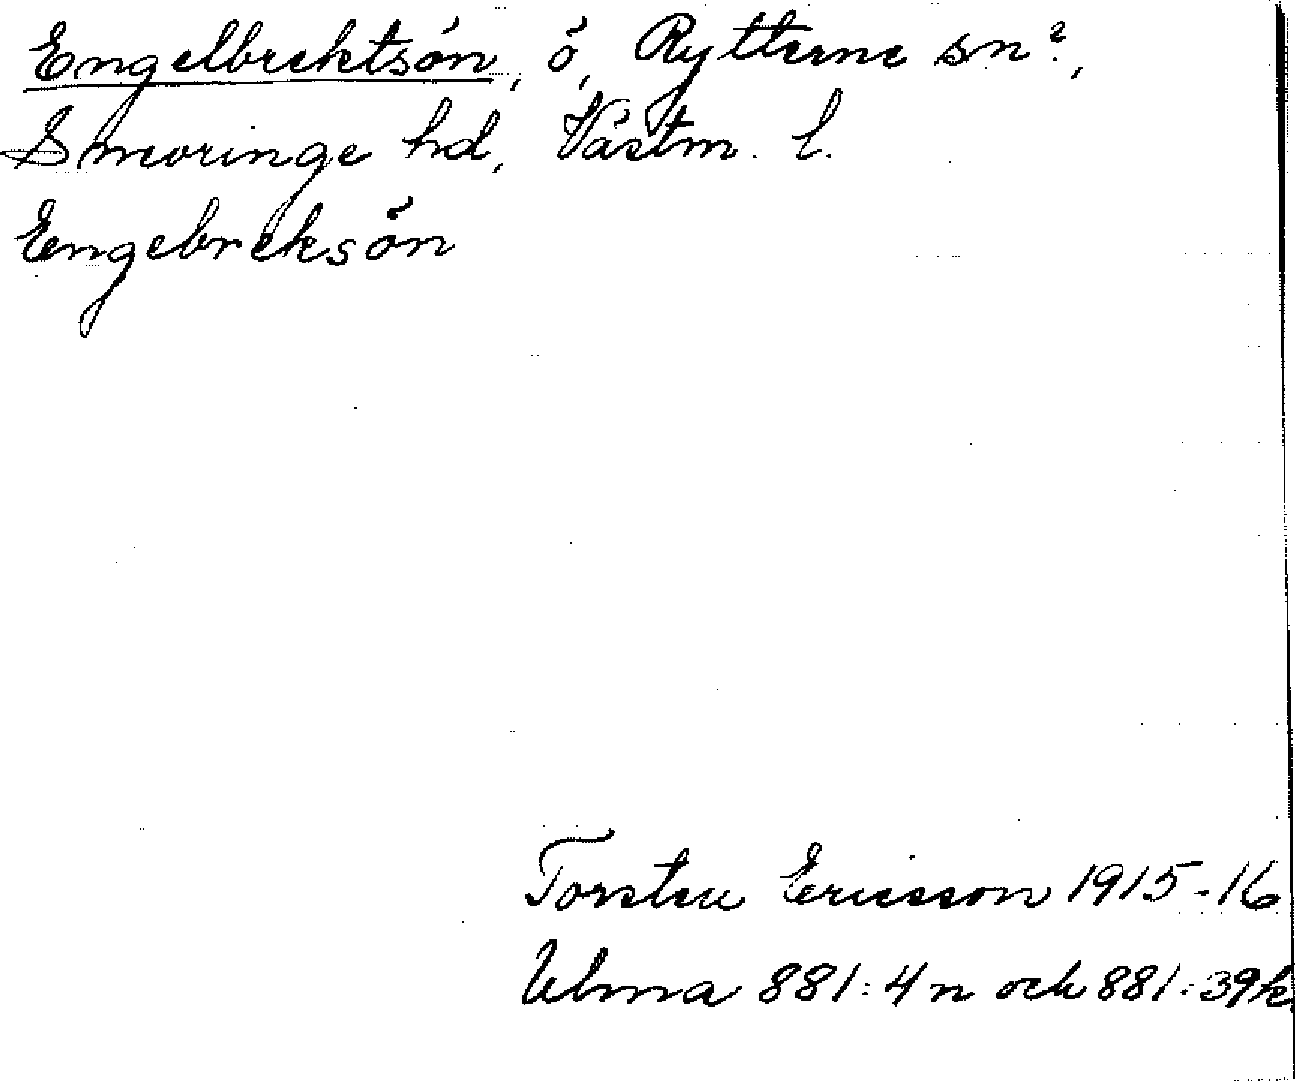 Engelbrektsön, ö, Rytterne sn?,
Snevringe hd, Västm. l.
Engebreksön
Torsten Ericsson 1915-16
Ulma 881:4n och 881:39k